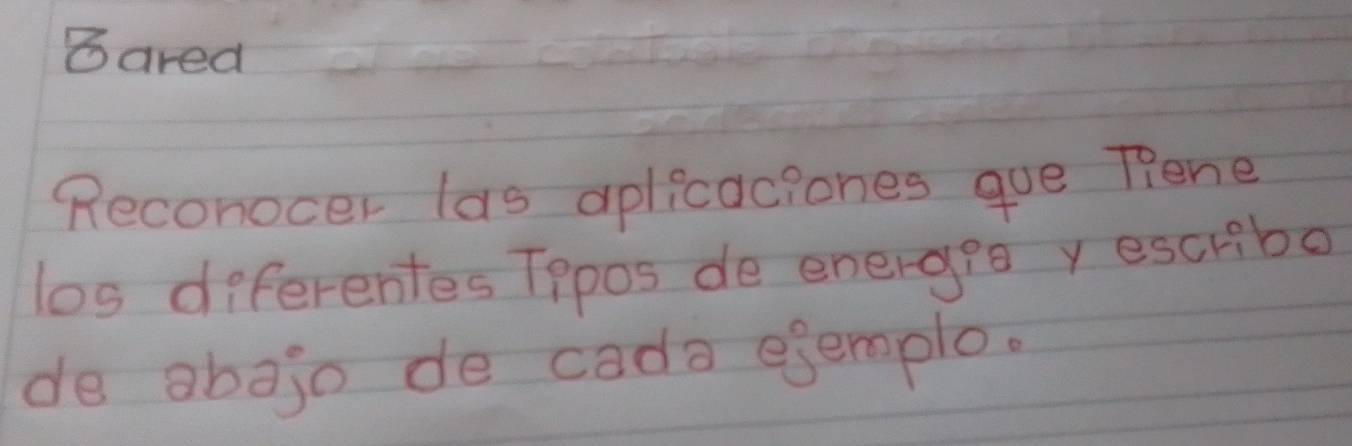 Bared
Reconocer las aplicaciones que Tiene
los diferentes Tipos de energia y escribo
de abajo de cada ejemplo.